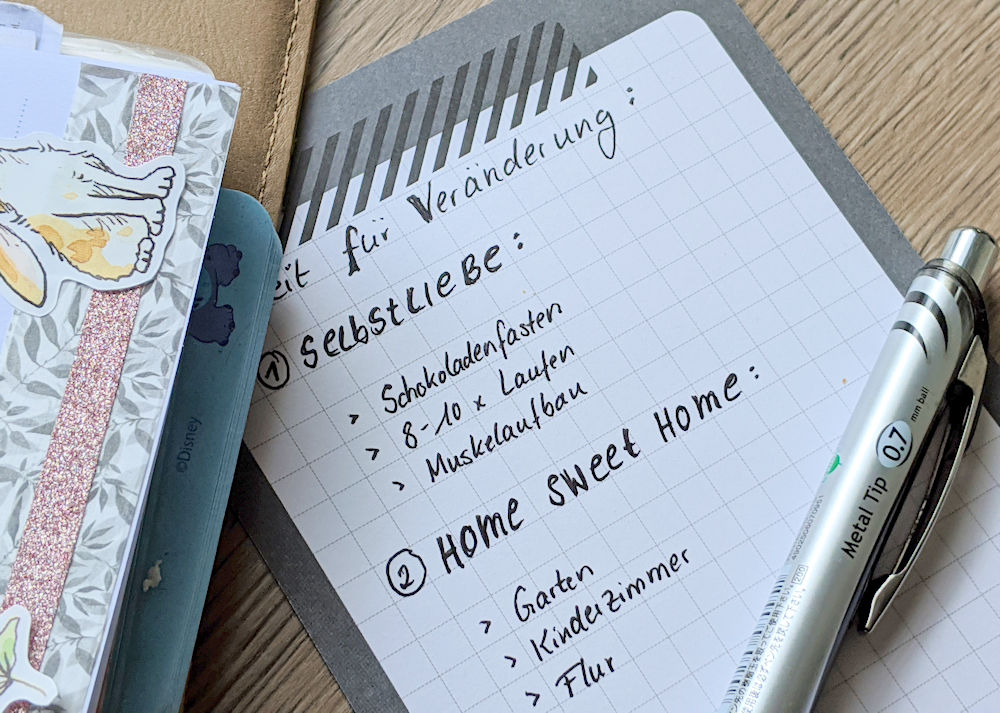 eit für Veränderung:
① Selbstliebe:
> Schokoladenfasten
> 8-10 x Laufen
> Muskelaufbau
② Home sweet Home:
> Garten
> Kinderzimmer
> Flur
©Disney
Metal Tip 0.7 mm ball